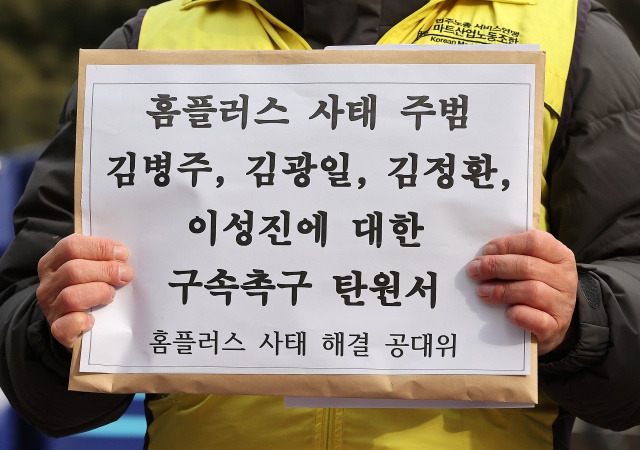 민주노총 서비스연맹
마트산업노동조합
Korean M
홈플러스 사태 주범
김병주, 김광일, 김정환,
이성진에 대한
구속촉구 탄원서
홈플러스 사태 해결 공대위